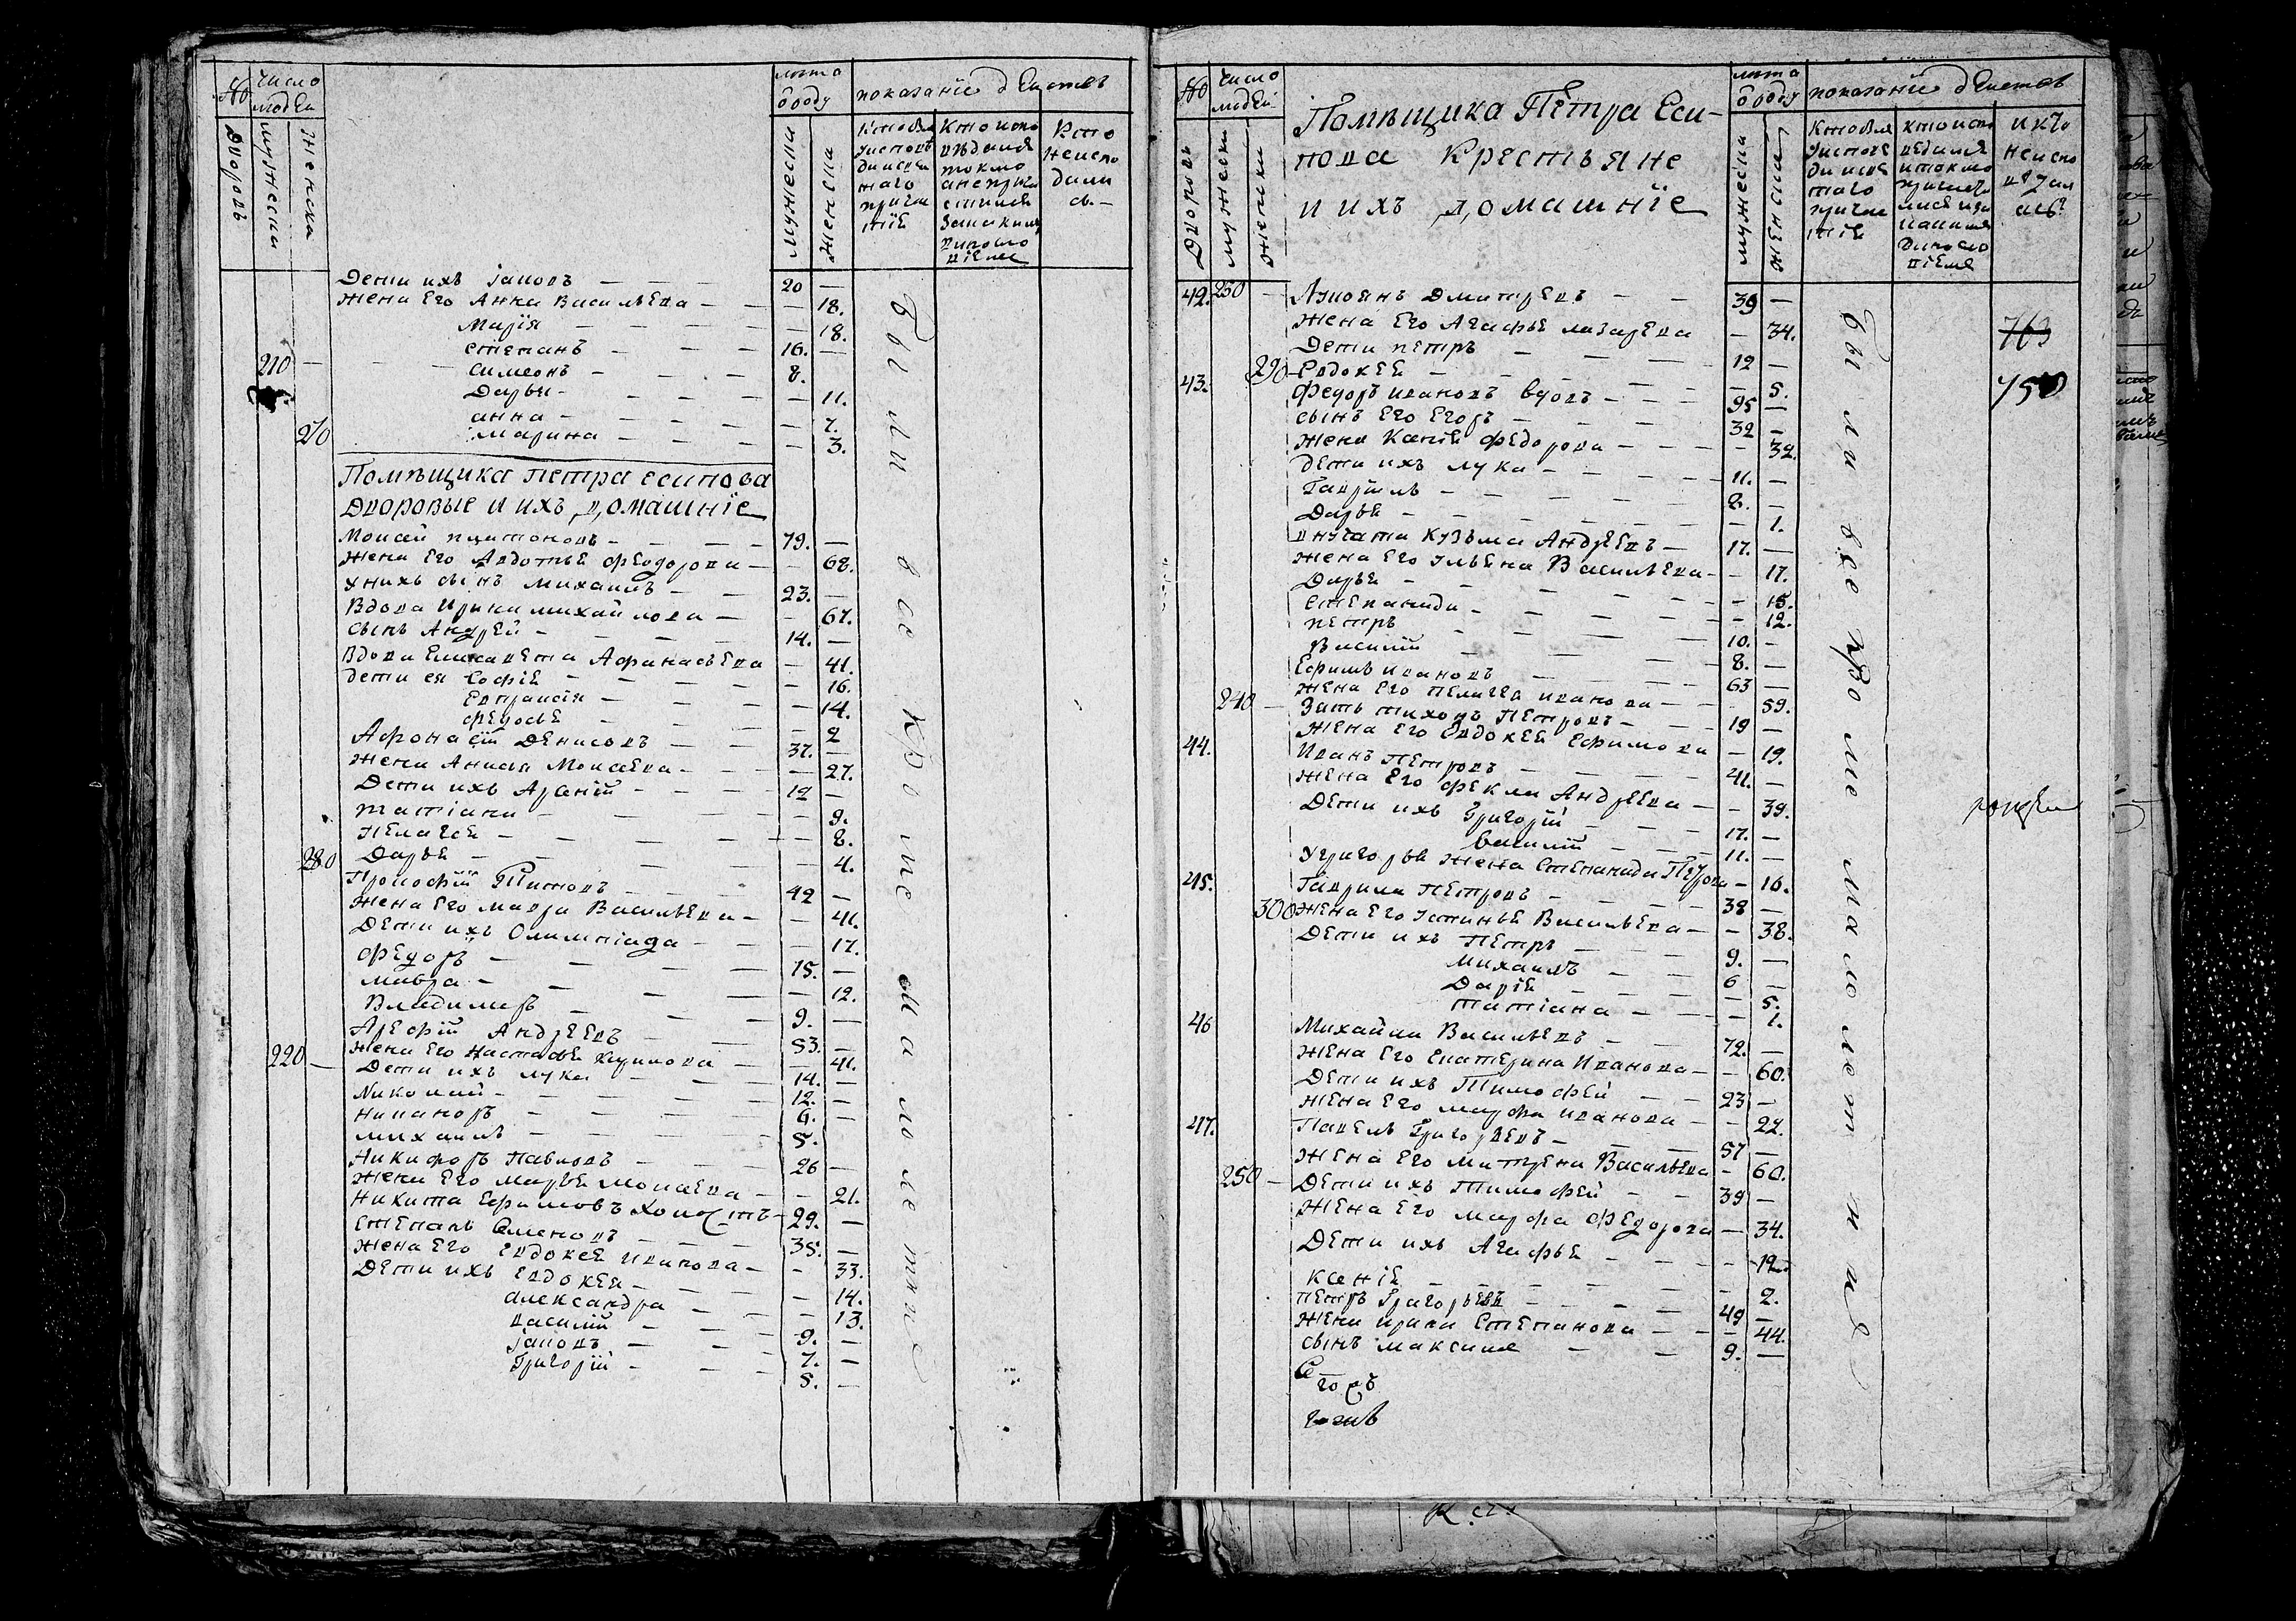 № число людей лѣта ѿ роду показанїе дѣйствъ
Дворовъ мужеска женска мужеска женска
Дети ихъ Іаковъ — 20 —
жена Его Анна Васильева — 18.
Марїя — 18.
степанъ — 16. —
210 — симеонъ — 8.
Дарья — 11.
анна — 7.
270 Марина — 3.
Помѣщика петра есипова
Дворовые и ихъ домашнїе
Моисей платоновъ — 79. —
жена Его Авдотья феодорова — 68.
У нихъ сынъ Михаилъ — 23. —
Вдова Ирина михайлова — 67.
сынъ Андрей — 14. —
Вдова Елисавета Афанасьева — 41.
дети ея Софїя — 16.
Евпраксїя — 14.
федосья — 2
Афонасїй Денисовъ — 37. —
жена Анисья Моисеева — 27.
Дети ихъ Арсенїй — 12 —
татїана — 9.
пелагея — 8.
280 Дарья — 4.
Прокофїй Титовъ — 42 —
жена Его мавра Васильева — 41.
Дети ихъ Олимпїада — 17.
федоръ — 15. —
мавра — 12.
Владимиръ — 9. —
Арефїй Андреевъ — 53. —
220 — жена Его настасья Кирилова — 41.
Дети ихъ лука — 14. —
Николай — 12. —
никаноръ — 6. —
михаилъ — 5.
Никифоръ Павловъ — 26 —
жена Его марья Моисеева — 21.
Никита Ефимовъ холостъ — 29. —
степанъ Семеновъ — 35. —
жена Его Евдокея Иванова — 33.
Дети ихъ Евдокея — 14.
Александра — 13.
василїй — 9. —
Іаковъ — 7. —
Григорїй — 5. —
были все кроме малолетние
№ число людей лѣта ѿ роду показанїе дѣйствъ
Помѣщика Петра Еси-
пова Крестьяне
и ихъ домашнїе
Дворовъ мужеска женска мужеска женска
42. 230 — Лукьянъ Дмитревъ — 39 —
жена Его Агафья лазарева — 34.
Дети петръ — 12 —
290 — Евдокея — 5.
43. федоръ ивановъ вдовъ — 95 —
сынъ Его Егоръ — 32 —
жена Ксенїя федорова — 32.
дети ихъ лука — 11. —
Гаврилъ — 8. —
Дарья — 1.
внучата Кузьма Андреевъ — 17. —
жена Его Ульяна Васильева — 17.
Дарья — 15.
степанида — 12.
петръ — 10. —
Василїй — 8. —
Ефимъ ивановъ — 63 —
240 — жена Его пелагея иванова — 59.
Зять тихонъ Петровъ — 19 —
жена Его Евдокея Ефимова — 19.
44. Иванъ петровъ — 41. —
жена Его фекла Андреева — 39.
Дети ихъ Григорїй — 17. —
Василїй — 11. —
У григорья жена Степанида Петрова — 16.
45. Гаврила петровъ — 38 —
300 жена Его устинья Васильева — 38.
Дети ихъ петръ — 9. —
михаилъ — 6
Дарїя — 5.
татїана — 1.
46 Михайла Васильевъ — 72. —
жена Его екатерина Иванова — 60.
Дети ихъ Тимофей — 23 —
жена Его марфа иванова — 22.
47. Павелъ Григорьевъ — 57 —
жена Его матрена Васильева — 60.
250 — Дети ихъ Тимофей — 39 —
жена Его марфа федорова — 34.
Дети ихъ Агафья — 12
Ксенїя — 2.
петръ Григорьевъ — 49 —
жена ирина Степанова — 44.
сынъ максимъ — 9. —
были все кроме малолетнихъ
763
750